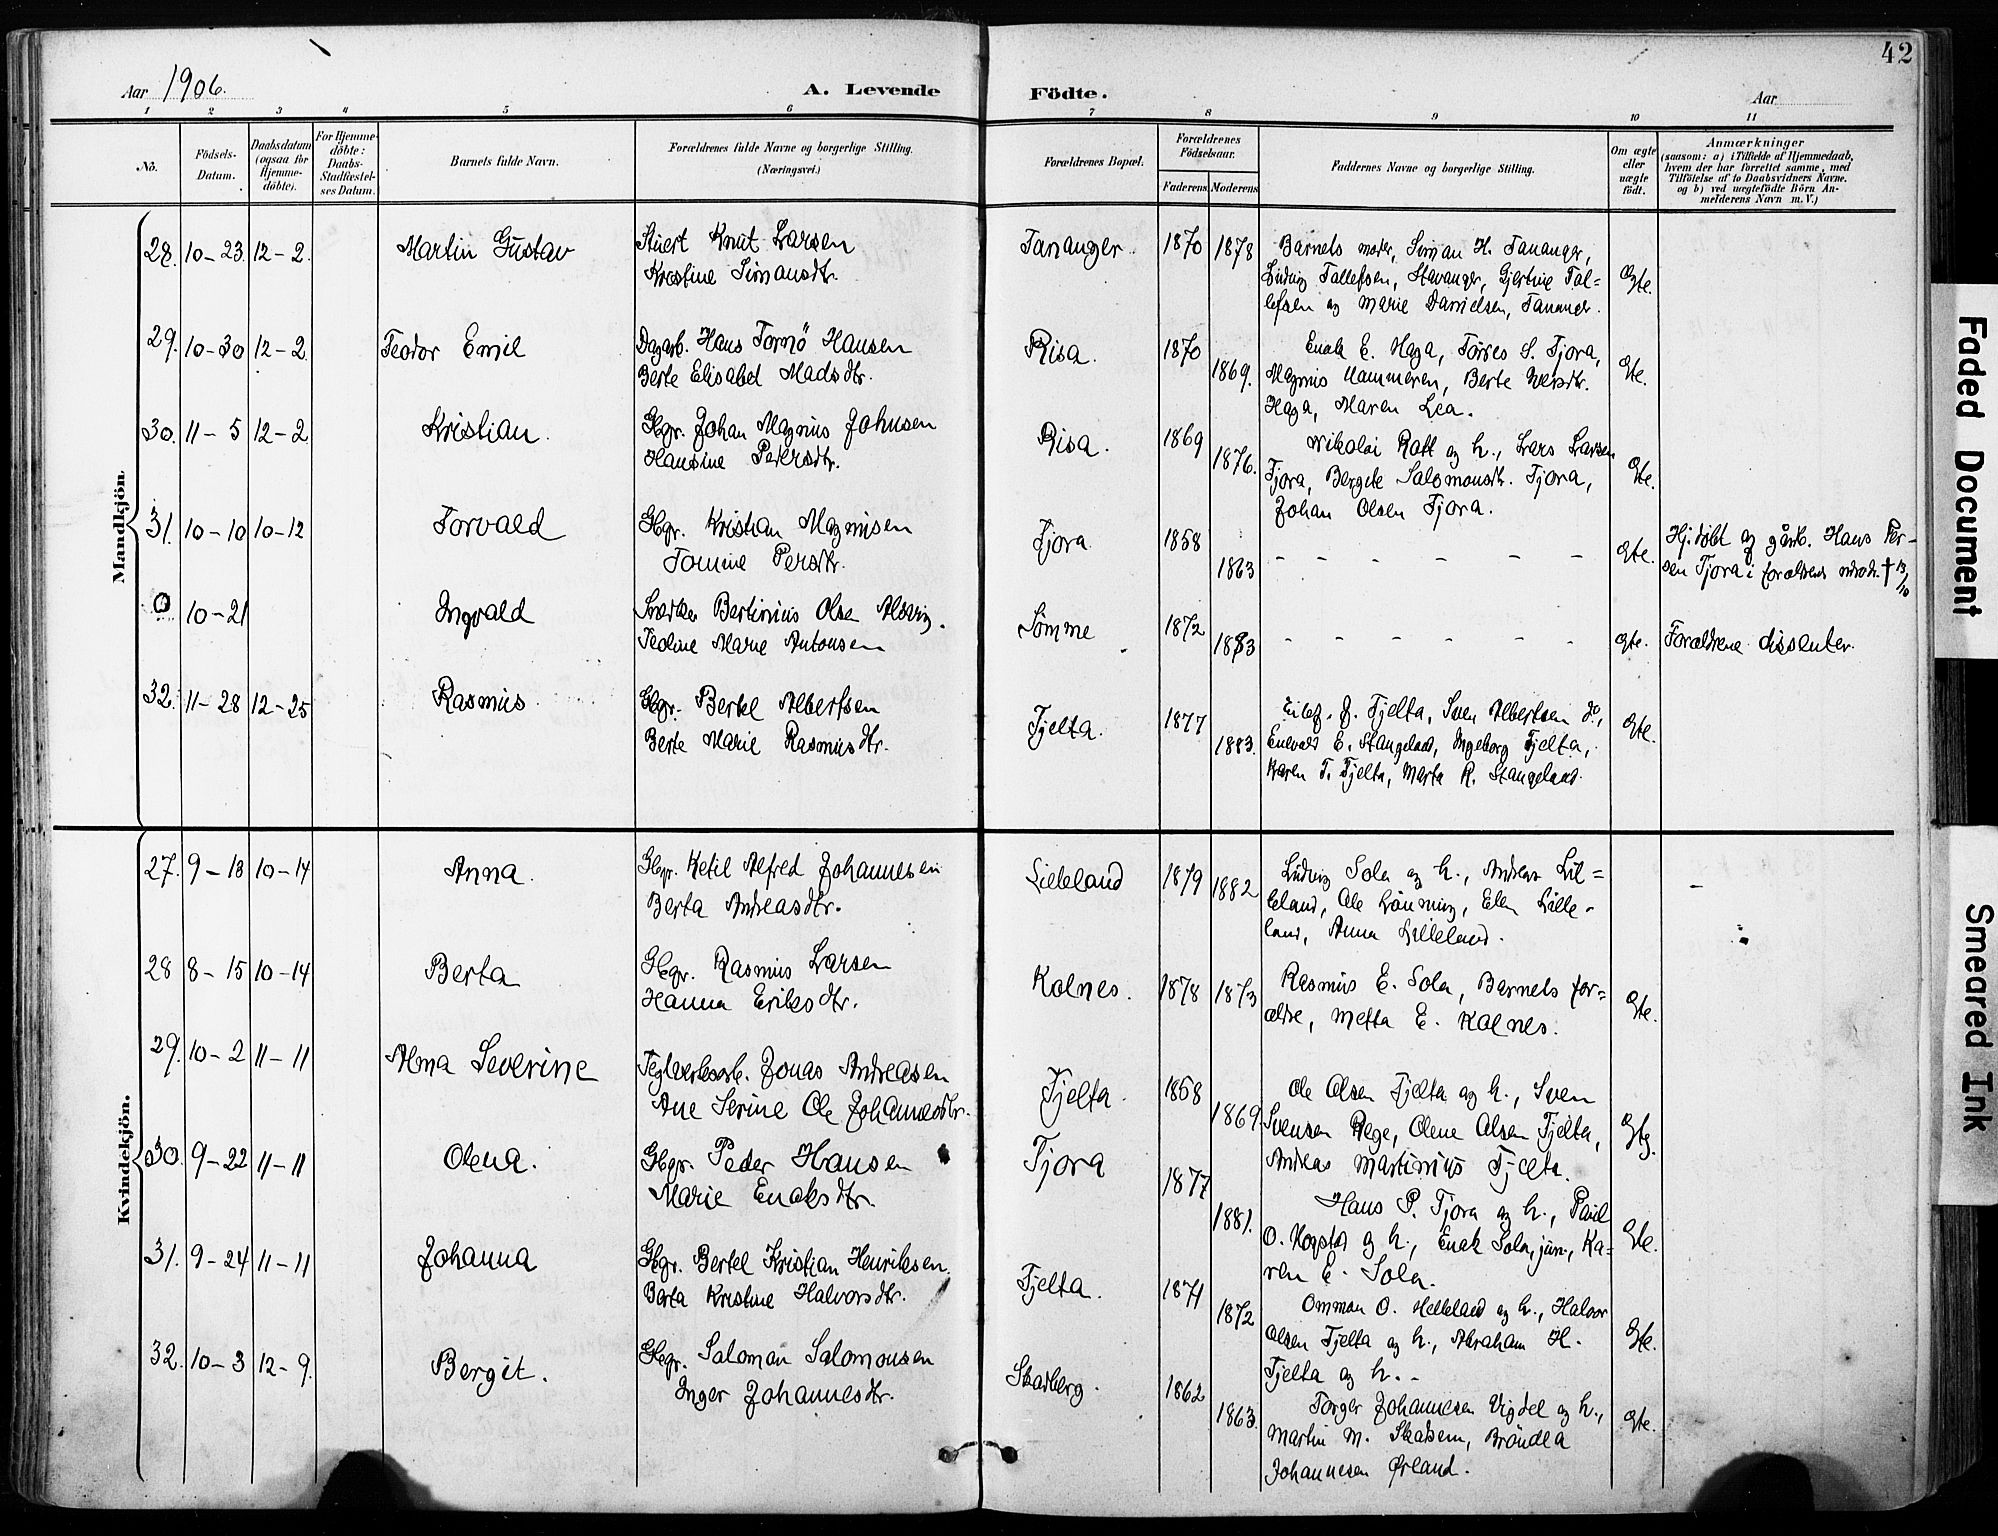 42
Aar 1906.
A. Levende Födte.
Aar
1 2 3 4 5 6 7 8 9 10 11
No.
Födsels-Datum.
Daabsdatum (ogsaa for Hjemme-döbte).
For Hjemme-döbte: Daabs-Stadfæstel-ses Datum.
Barnets fulde Navn.
Forældrenes fulde Navne og borgerlige Stilling.
(Næringsvei.)
Forældrenes Bopæl.
Forældrenes Födselsaar.
Faderens. Moderens.
Faddernes Navne og borgerlige Stilling.
Om ægte eller uægte født.
Anmærkninger
(saasom: a) i Tilfælde af Hjemmedaab,
hvem der har forrettet samme, med
Tilföielse af to Daabsvidners Navne.
og b) ved uægtefödte Börn An-
melderens Navn m. V.)
Mandkjön.
28. 10-23 12-2. Martin Gustav
Stuert Knut Larsen
Kristine Simonsdtr.
Tananger. 1870 1878
Barnets moder, Simon H. Tananger,
Ludvig Tollefsen, Stavanger, Gjertine Tol=
lefsen og Marie Danielsen, Tananger.
Egte.
29. 10-30 12-2. Teodor Emil
Dagarb. Hans Tornö Hansen
Berte Elisabet Madsdtr.
Risa. 1870 1869.
Enok E. Haga, Törres S. Tjora,
Magnus Hammeren, Berte
Haga, Maren Lea.
Ete.
30. 11-5 12-2 Kristian.
Gbgr. Johan Magnus Johnsen
Hansine Pedersdtr.
Risa. 1869 1876.
Nikolai Rott og h., Lars Larsen
Tjora, Bergite Salomonsdtr. Tjora,
Johan Olsen Tjora.
Ete.
31. 10-10 10-12 Torvald
Gbgr. Kristian Magnusen
Tomine Persdtr.
Tjora 1858 1863
- - - - - -
Ete.
Hj. döbt af gårdb. Hans Per-
sen Tjora i forældrenes † 13/10
0 10-21 Ingvald
Bertinius Olsen
Teoline Marie Antonsen
Sömme 1872 1883
- - - - - -
Ete.
Forældrene dissenter.
32. 11-28 12-25 Rasmus
Gbgr. Bertel Albertsen
Berte Marie Rasmusdtr.
Tjelta. 1877 1883.
J. Tjelta, Sven Albertsen do,
Enevald E. Stangeland, Ingeborg Tjelta,
Karen T. Tjelta, Marta R. Stangeland.
Ete.
Kvindekjön.
27. 9-18 10-14 Anna.
Gbgr. Ketil Alfred Johannesen
Berta Andreasdtr.
Lilleland 1879 1882
Ludvig Sola og h., Andreas Lil=
leland, Ole Lönning, Elen Lille-
land, Anna Lilleland.
28 8-15 10-14 Berta
Gbgr. Rasmus Larsen
Hanna Eriksdtr.
Kolnes. 1878 1873
Rasmus E. Sola, Barnets for=
ældre, Metta E. Kolnes.
Ete.
29. 10-2 11-11 Alma Severine
Teglverksarb. Jonas Andreasen
Ane Serine Ole Johannesdtr.
Tjelta. 1858 1869
Ole Olsen Tjelta og h., Sven
Svensen Rege, Olene Olsen Tjelta,
Andreas Martinius Tjelta.
30. 9-22 11-11 Olena.
Gbgr. Peder Hansen
Marie Enoksdtr.
Tjora 1877 1881.
Hans P. Tjora og h., Paul
O. Hogstad og h., Enok Sola, jun., Ka-
ren E. Sola.
Ete.
31. 9-24 11-11 Johanna
Gbgr. Bertel Kristian Henriksen.
Berta Kristine Halvorsdtr.
Tjelta. 1871 1872
Ommon O. Helleland og h., Halvor
Olsen Tjelta og h., Abraham H.
Tjelta og h.-
Ete.
32. 10-3 12-9. Bergit.
Gbgr. Salomon Salomonsen
Inger Johannesdtr.
Skadberg. 1862 1863.
Torger Johannesen Vigdel og h.,
Martin M. Skadsem, Bröndla
Johannesen Ørland.
Ete.
Faded Document
Smeared Ink